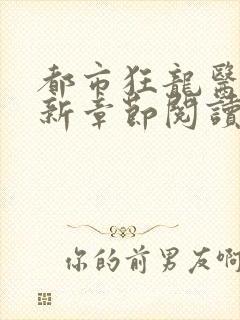 都市狂龍醫
新章節閱讀
你的前男友啊